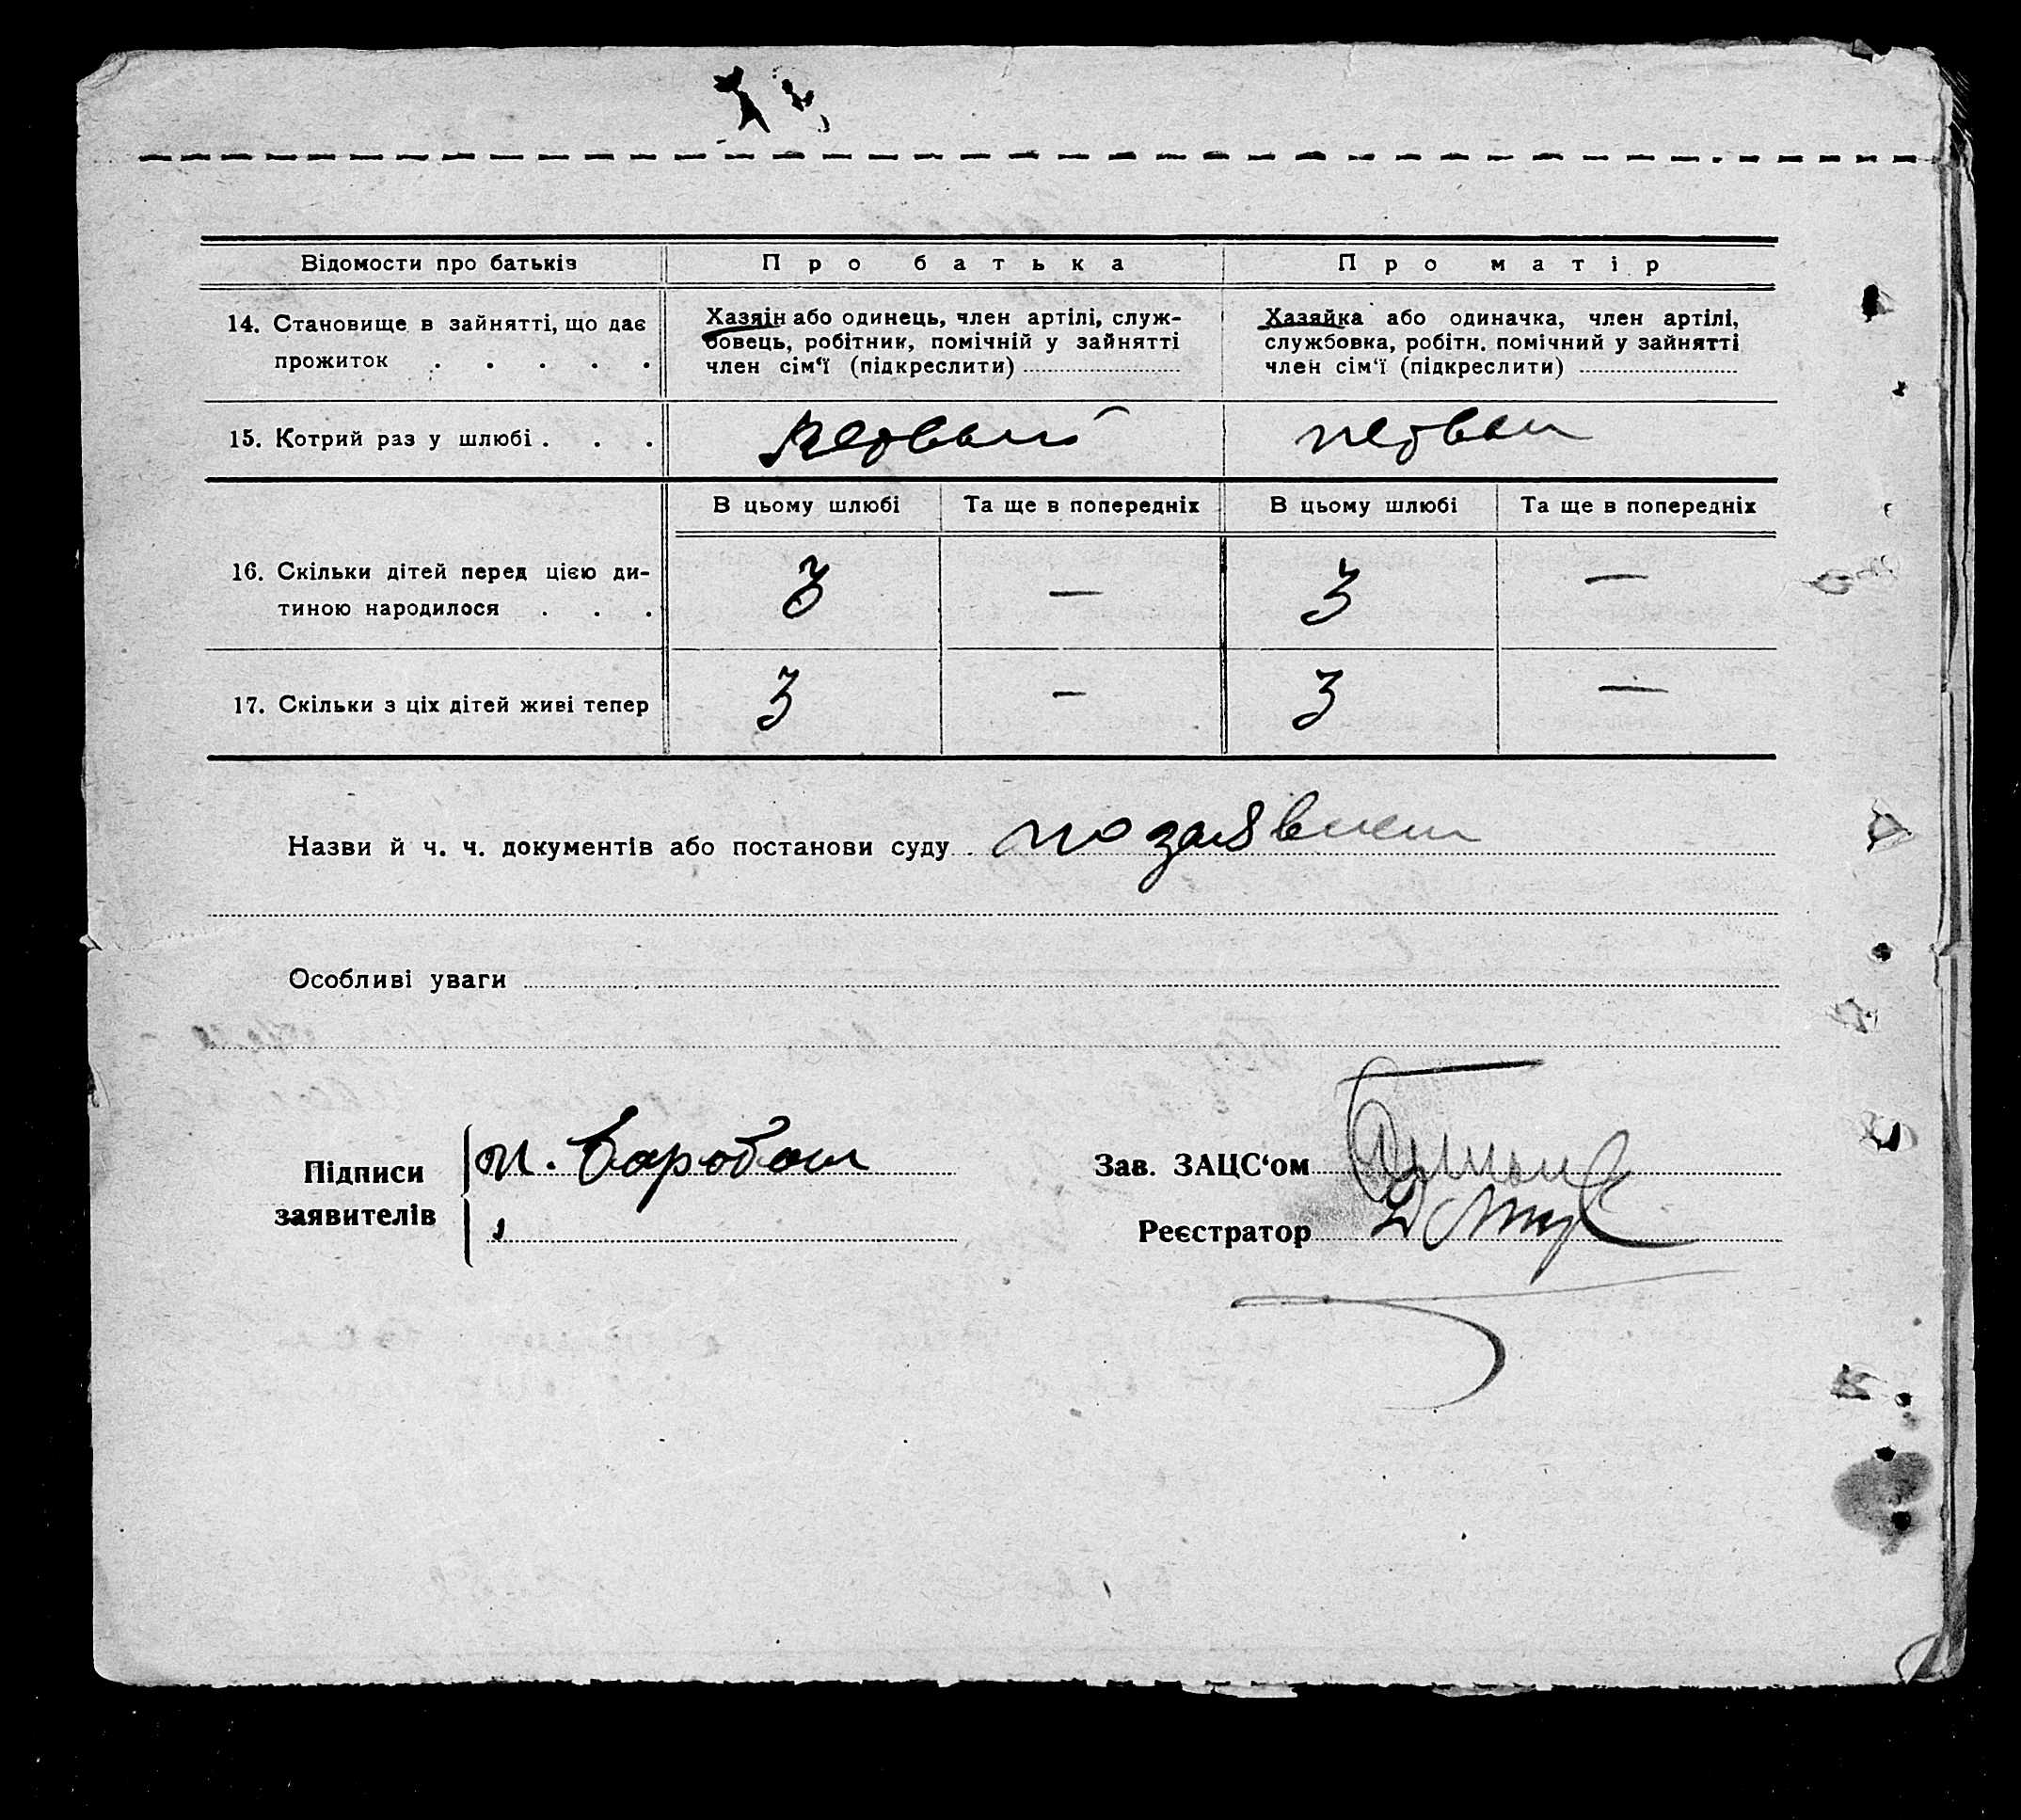 Відомости про батьків
П р о б а т ь к а
П р о м а т і р
14. Становище в зайнятті, що дає прожиток . . . . .
Хазяїн або одинець, член артілі, служ-
бовець, робітник, помічній у зайнятті
член сім‘ї (підкреслити)
Хазяйка або одиначка, член артілі,
службовка, робітн. помічний у зайнятті
член сім‘ї (підкреслити)
15. Котрий раз у шлюбі . . .
первый
первый
В цьому шлюбі
Та ще в попередніх
В цьому шлюбі
Та ще в попередніх
16. Скільки дітей перед цією ди-
тиною народилося . . .
3
—
3
—
17. Скільки з ціх дітей живі тепер
3
—
3
—
Назви й ч. ч. документів або постанови суду по заявлен
Особливі уваги
Підписи
заявителів
Зав. ЗАЦС‘ом
Реєстратор